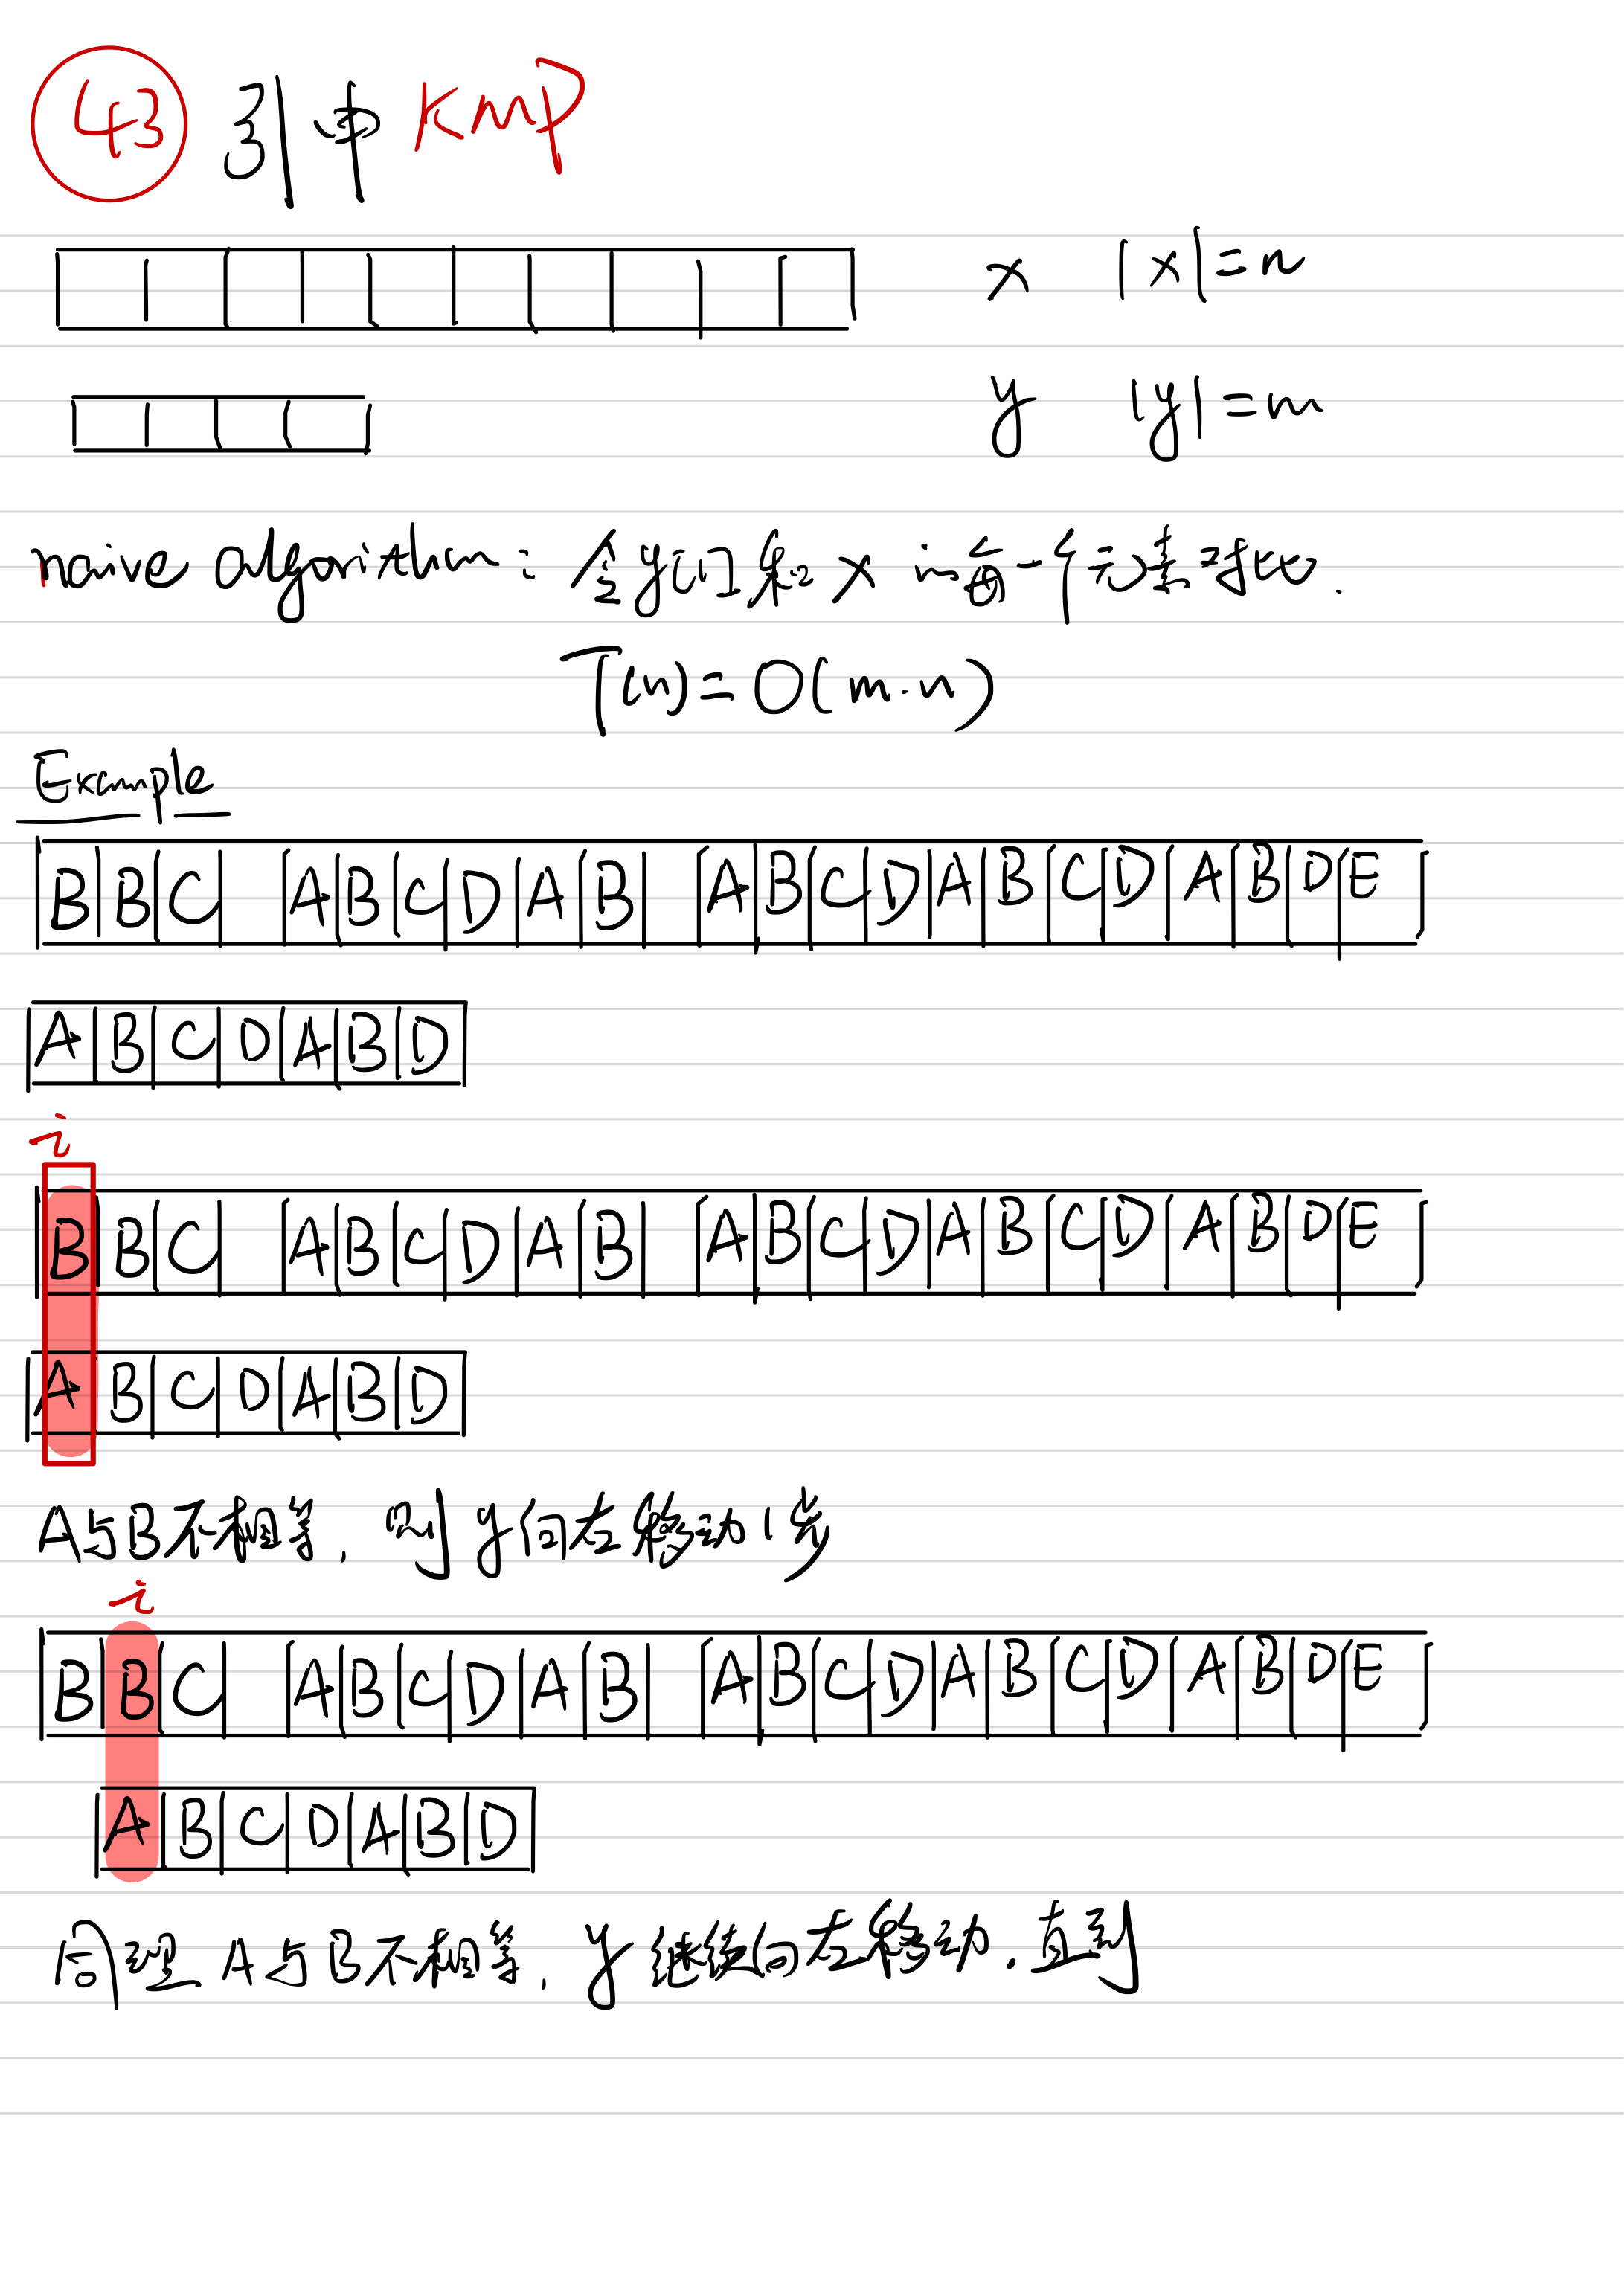 43 引申 KMP
x |x|=n
y |y|=m
naive algorithm: 令y[1]和x 每一个元素去比.
T(n)=O(m·n)
Example
B B C A B C D A B A B C D A B C D A B D E
A B C D A B D
i
B B C A B C D A B A B C D A B C D A B D E
A B C D A B D
A与B不相等, 则y向右移动1步
i
B B C A B C D A B A B C D A B C D A B D E
A B C D A B D
同理A与B不相等, y继续向右移动. 直到